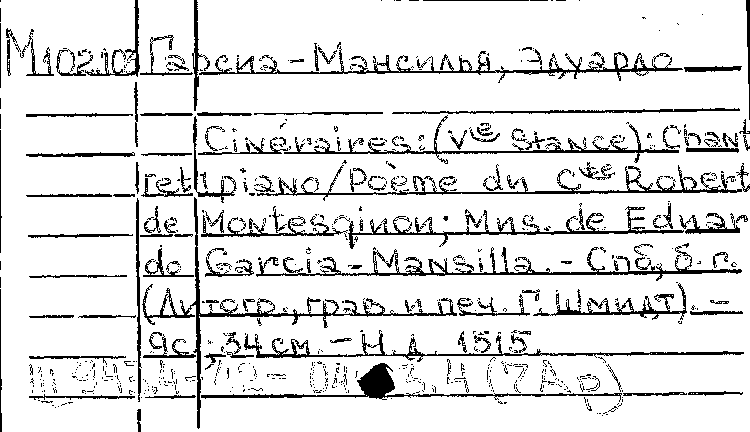 М102.103 Гарсиа-Мансилья, Эдуардо
Cinéraires: (Vte Stance): Chant
et piano/Poème du Cte Robert
de Montesqinon; Mns. de Eduar
do Garcia-Mansilla. - Спб, б.г.
(Литогр., грав. и печ. Г. Шмидт). -
9с.; 34см. - Н.д. 1515.
3.4 (7Ар)